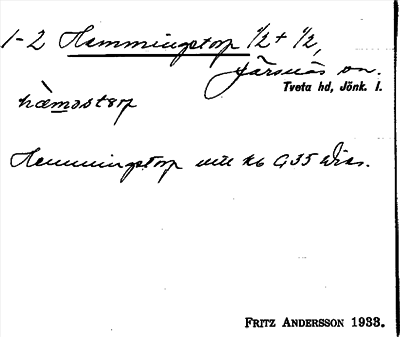 1-2 Hemmingstorp 1/2 + 1/2,
Järsnäs sn.
Tveta hd, Jönk. l.
hæ̀mostorp
Hemmingstorp mtl kb G35
FRITZ ANDERSSON 1933.